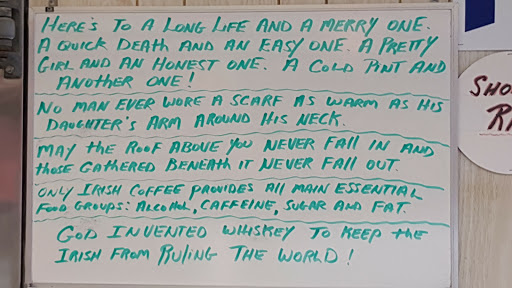 HERE'S TO A LONG LIFE AND A MERRY ONE.
A QUICK DEATH AND AN EASY ONE. A PRETTY
GIRL AND AN HONEST ONE. A COLD PINT AND
ANOTHER ONE!
NO MAN EVER WORE A SCARF AS WARM AS HIS
DAUGHTER'S ARM AROUND HIS NECK.
MAY THE ROOF ABOVE YOU NEVER FALL IN AND
THOSE GATHERED BENEATH IT NEVER FALL OUT.
ONLY IRISH COFFEE PROVIDES ALL MAIN ESSENTIAL
FOOD GROUPS: ALCOHOL, CAFFEINE, SUGAR AND FAT.
GOD INVENTED WHISKEY TO KEEP THE
IRISH FROM RULING THE WORLD!